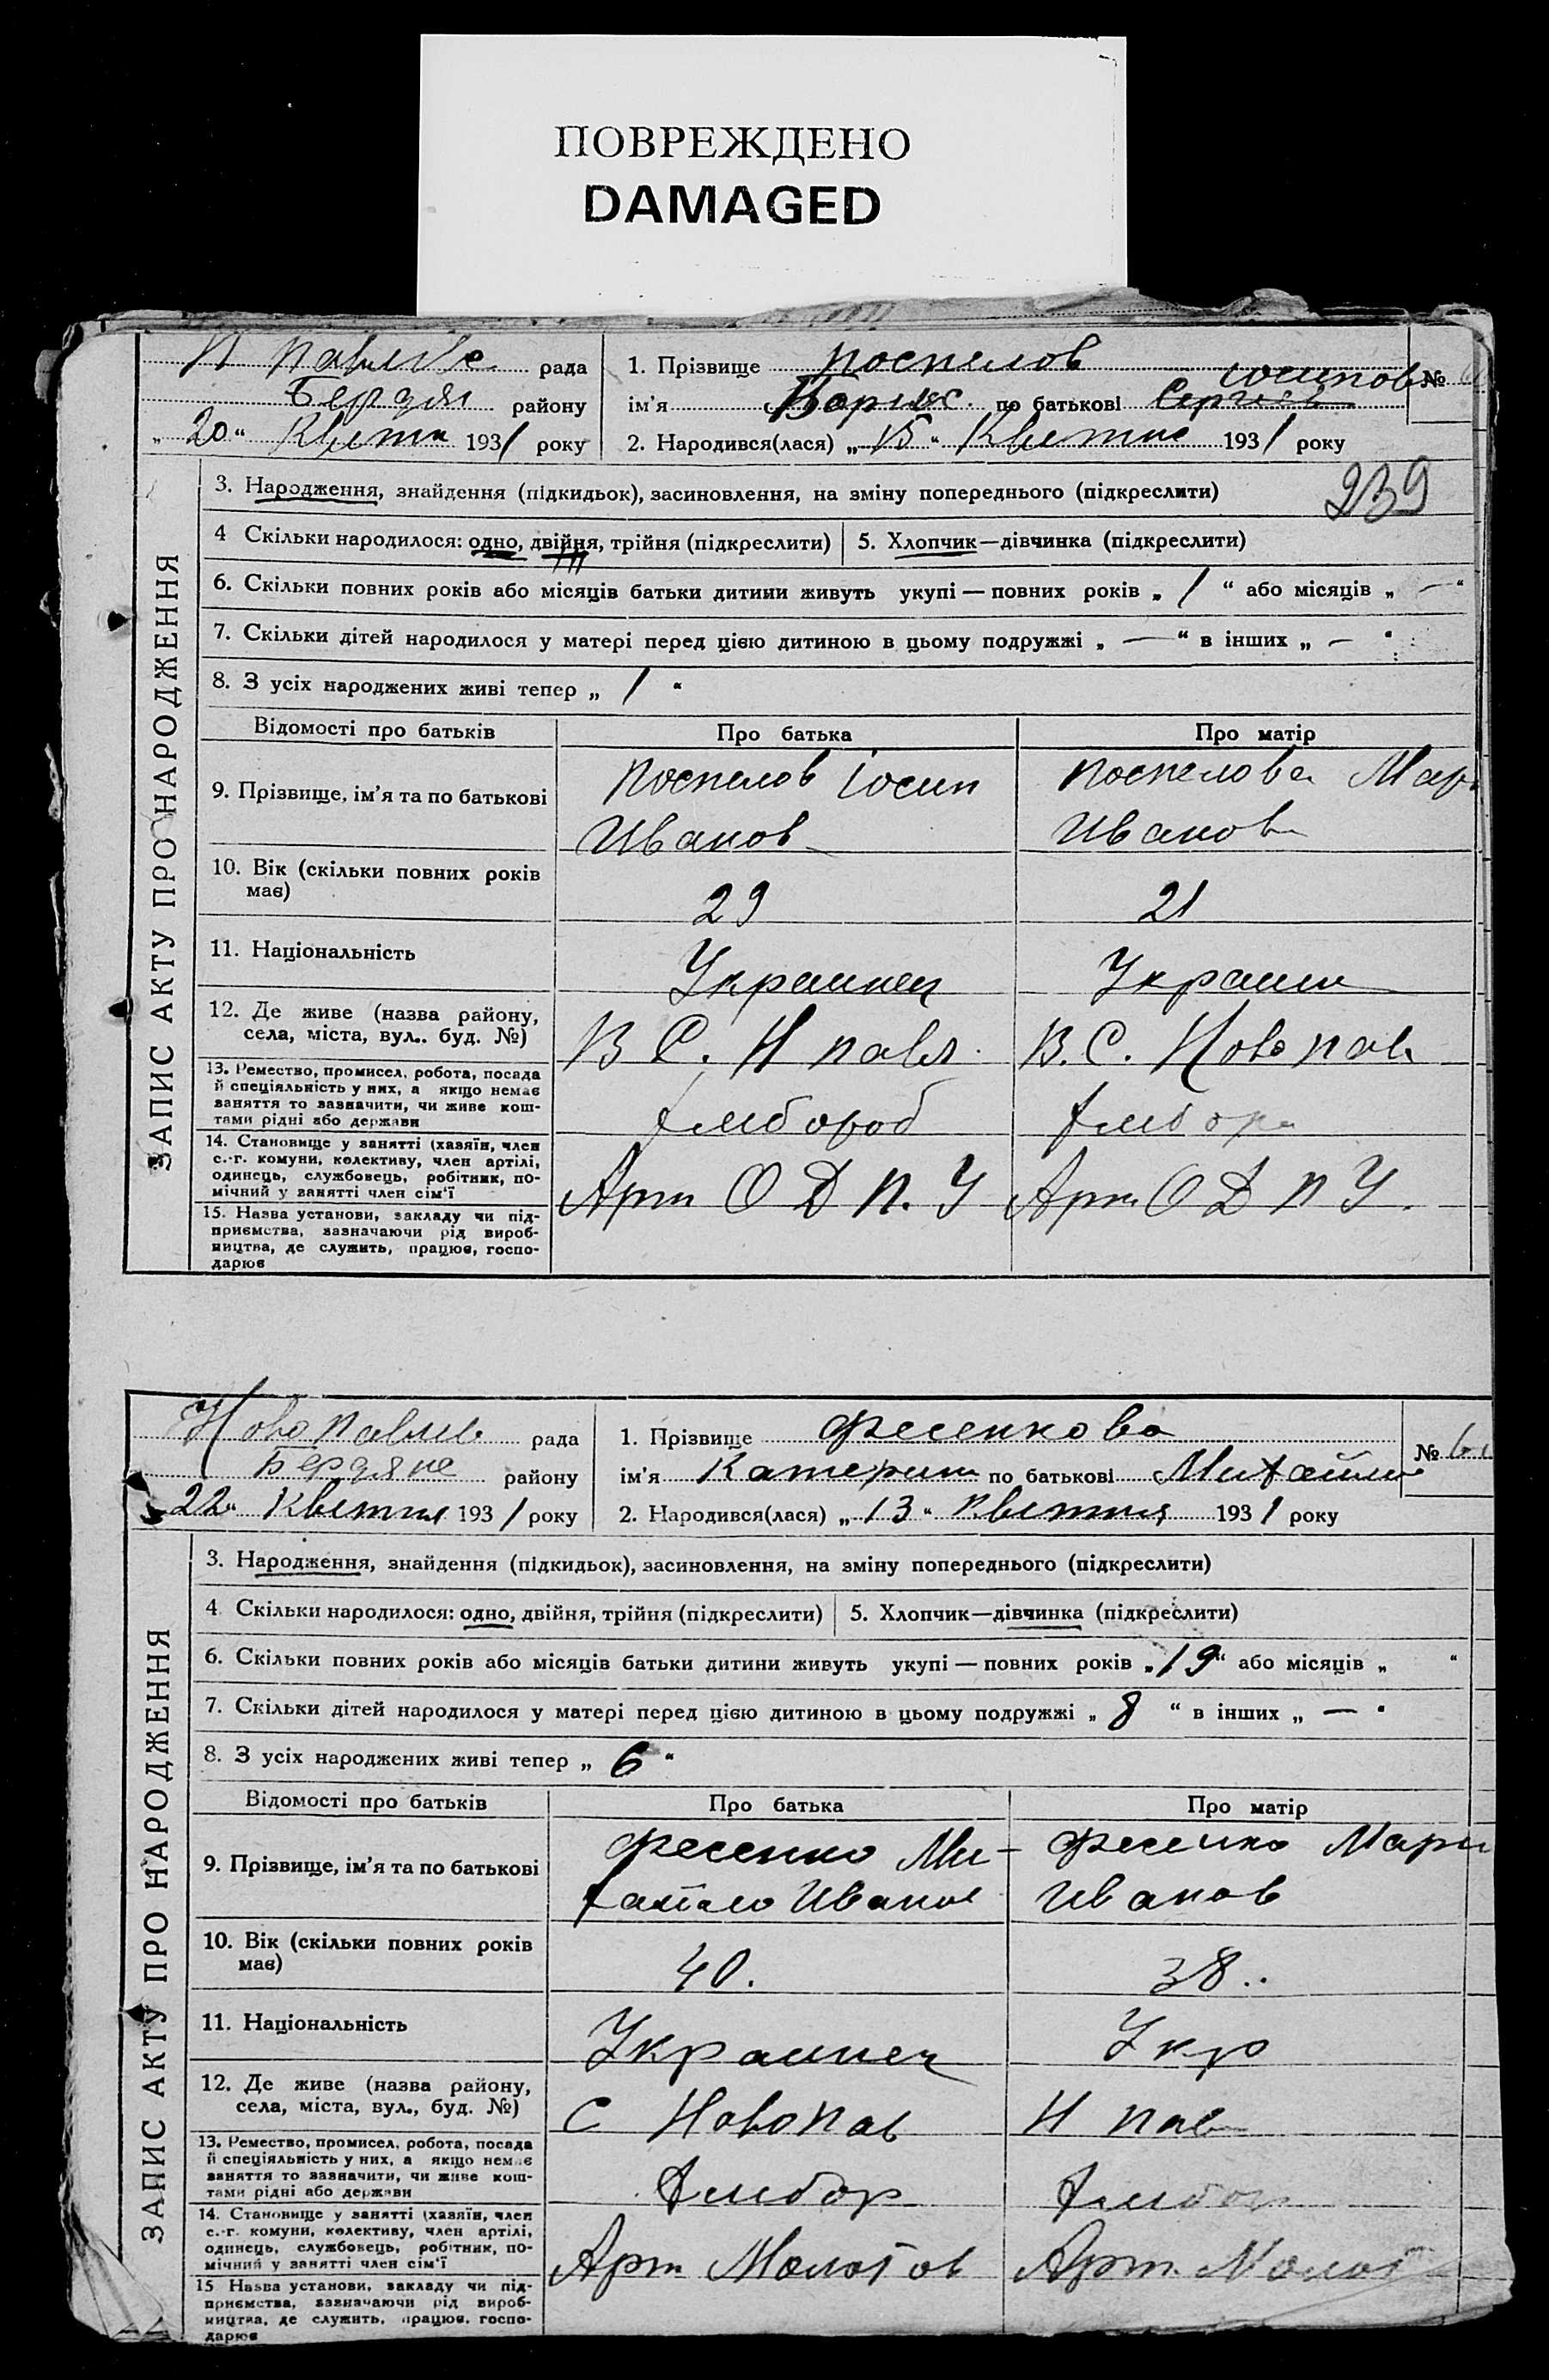 ПОВРЕЖДЕНО
DAMAGED
Н Павлів. рада
Бердян району
„20“ Квітн 1931 року
1. Прізвище Поспелов
ім'я Борис по батькові Сергієв Іосипов
№
2. Народився(лася) „15“ Квітня 1931 року
239
ЗАПИС АКТУ ПРО НАРОДЖЕННЯ
3. Народження, знайдення (підкидьок), засиновлення, на зміну попереднього (підкреслити)
4 Скільки народилося: одно, двійня, трійня (підкреслити)
5. Хлопчик—дівчинка (підкреслити)
6. Скільки повних років або місяців батьки дитини живуть укупі — повних років „ 1 “ або місяців „ — “
7. Скільки дітей народилося у матері перед цією дитиною в цьому подружжі „ — “ в інших „ — “
8. З усіх народжених живі тепер „ 1 “
Відомості про батьків
Про батька
Про матір
9. Прізвище, ім'я та по батькові
Поспелов Іосип
Иванов
Поспелова Мар
Иванов
10. Вік (скільки повних років
має)
29
21
11. Національність
Украинец
Украин
12. Де живе (назва району,
села, міста, вул.. буд. №)
В С. Н павл.
В. С. Ново пав
13. Ремество, промисел, робота, посада
й спеціяльність у них, а якщо немає
заняття то зазначити, чи живе кош-
тами рідні або держави
Хлібороб
Хлібор
14. Становище у занятті (хазяїн, член
с.-г. комуни, колективу, член артілі,
одинець, службовець, робітник, по-
мічний у занятті член сім'ї
Арт О Д П. У
Арт. О Д П У.
15. Назва установи, закладу чи під-
приємства, зазначаючи рід вироб-
ництва, де служить, працює, госпо-
дарює
Ново павлів рада
Бердянс району
„22“ Квітня 1931 року
1. Прізвище Фесенкова
ім'я Катерин по батькові Михайлів
№
2. Народився(лася) „13“ Квітня 1931 року
ЗАПИС АКТУ ПРО НАРОДЖЕННЯ
3. Народження, знайдення (підкидьок), засиновлення, на зміну попереднього (підкреслити)
4 Скільки народилося: одно, двійня, трійня (підкреслити)
5. Хлопчик—дівчинка (підкреслити)
6. Скільки повних років або місяців батьки дитини живуть укупі — повних років „19“ або місяців „ “
7. Скільки дітей народилося у матері перед цією дитиною в цьому подружжі „ 8 “ в інших „ — “
8. З усіх народжених живі тепер „ 6 “
Відомості про батьків
Про батька
Про матір
9. Прізвище, ім'я та по батькові
Фесенко Ми-
хайло Иванов
Фесенко Мари
Иванов
10. Вік (скільки повних років
має)
40.
38..
11. Національність
Украинец
Укр
12. Де живе (назва району,
села, міста, вул., буд. №)
С Новопав
Н пав
13. Ремество, промисел, робота, посада
й спеціяльність у них, а якщо немає
заняття то зазначити, чи живе кош-
тами рідні або держави
Хлібор
Хлібор
14. Становище у занятті (хазяїн, член
с.-г. комуни, колективу, член артілі,
одинець, службовець, робітник, по-
мічний у занятті член сім'ї
Арт Молотов
Арт. Молот
15 Назва установи, закладу чи під-
приємства, зазначаючи рід вироб-
ництва, де служить, працює, госпо-
дарює